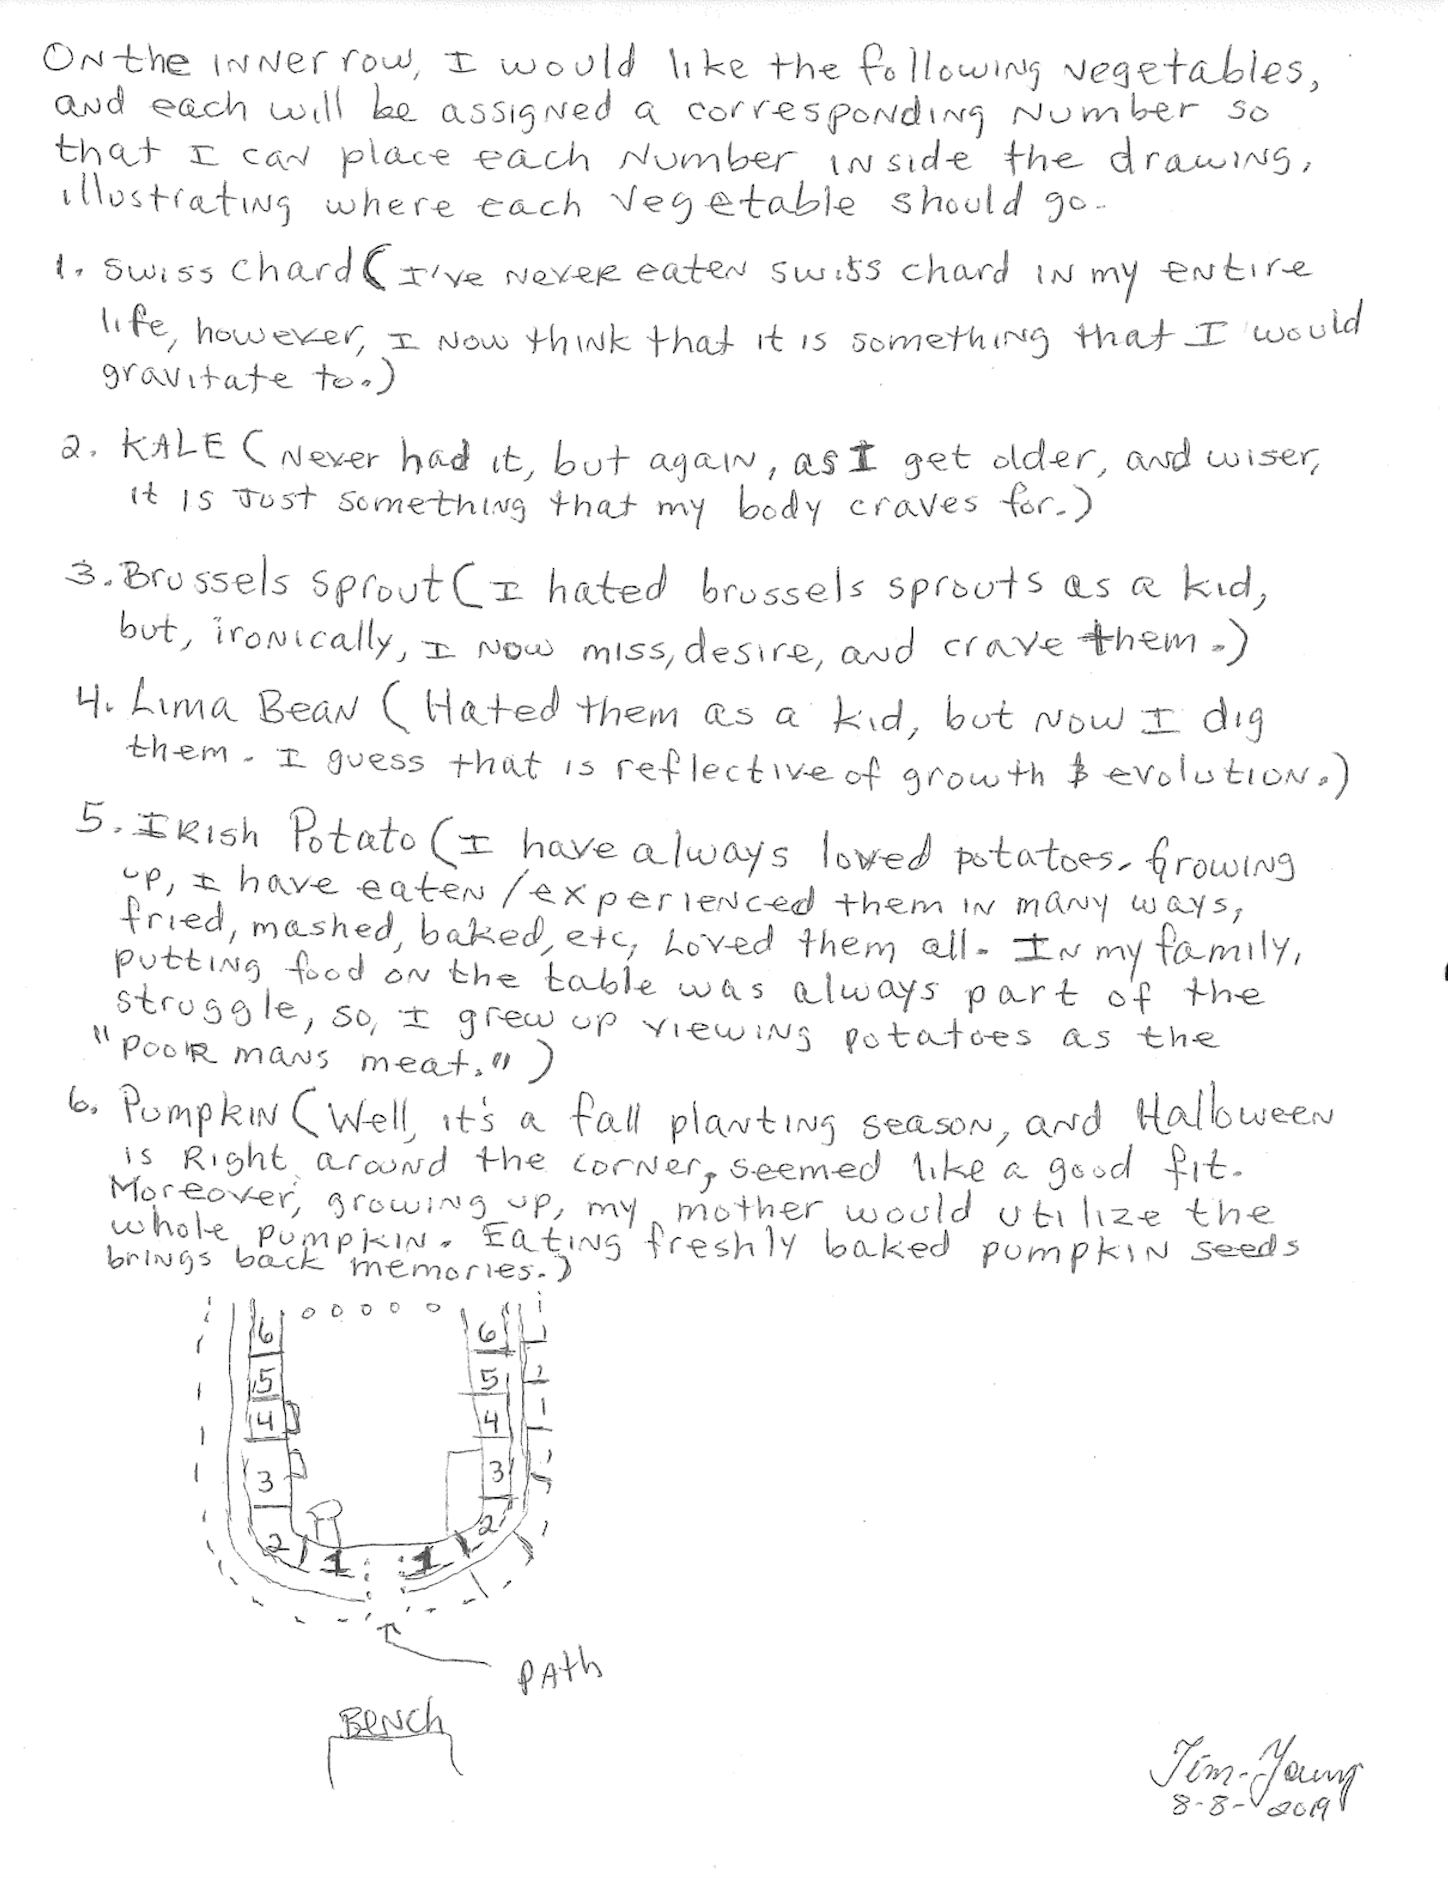 On the inner row, I would like the following vegetables,
and each will be assigned a corresponding number so
that I can place each number inside the drawing,
illustrating where each vegetable should go.
1. Swiss Chard (I've never eaten swiss chard in my entire
life, however, I now think that it is something that I would
gravitate to.)
2. KALE (Never had it, but again, as I get older, and wiser,
it is just something that my body craves for.)
3. Brussels Sprout (I hated brussels sprouts as a kid,
but, ironically, I now miss, desire, and crave them.)
4. Lima Bean (Hated them as a kid, but now I dig
them. I guess that is reflective of growth & evolution.)
5. Irish Potato (I have always loved potatoes. Growing
up, I have eaten/experienced them in many ways,
fried, mashed, baked, etc, Loved them all. In my family,
putting food on the table was always part of the
struggle, so, I grew up viewing potatoes as the
"poor mans meat.")
6. Pumpkin (Well, it's a fall planting season, and Halloween
is Right around the corner, seemed like a good fit.
Moreover, growing up, my mother would utilize the
whole pumpkin. Eating freshly baked pumpkin seeds
brings back memories.)
6 6
5 5
4 4
3 3
2 2
1 1
PATH
BENCH
Tim-Young
8-8-2019